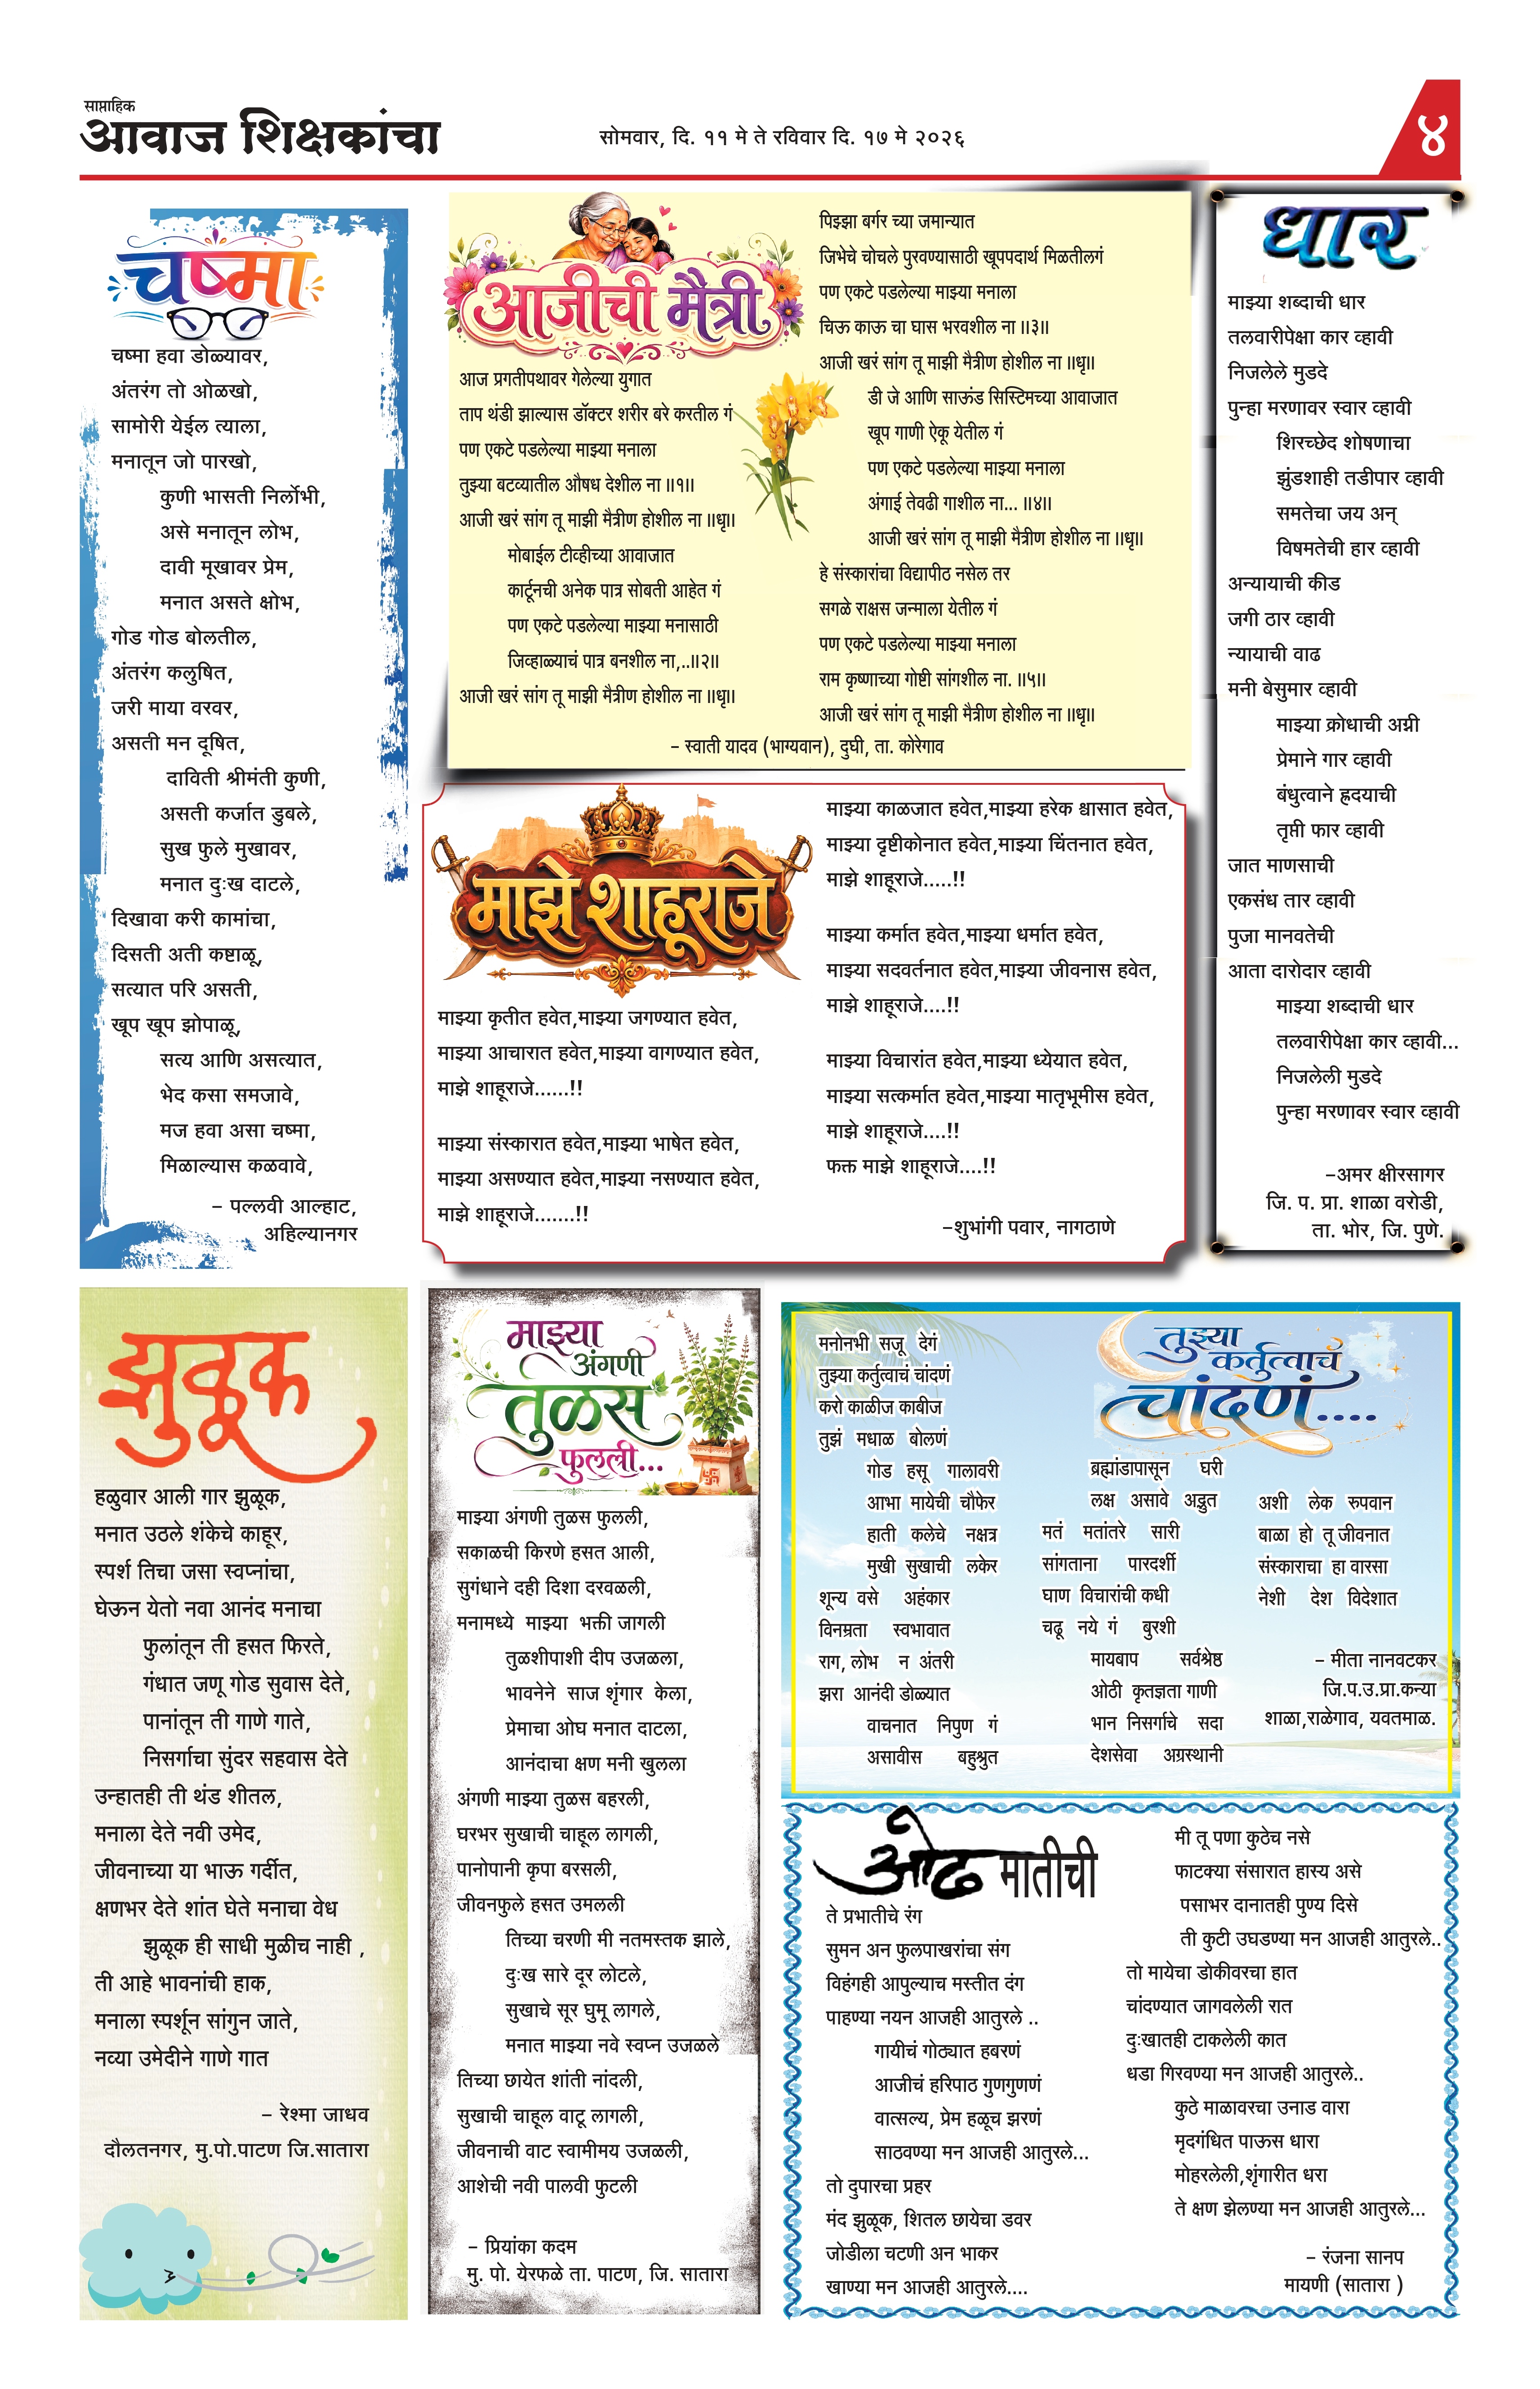 साप्ताहिक
आवाज शिक्षकांचा
सोमवार, दि. ११ मे ते रविवार दि. १७ मे २०२६
४
चष्मा
चष्मा हवा डोळ्यावर,
अंतरंग तो ओळखो,
सामोरी येईल त्याला,
मनातून जो पारखो,
कुणी भासती निर्लोभी,
असे मनातून लोभ,
दावी मूखावर प्रेम,
मनात असते क्षोभ,
गोड गोड बोलतील,
अंतरंग कलुषित,
जरी माया वरवर,
असती मन दूषित,
दाविती श्रीमंती कुणी,
असती कर्जात डुबले,
सुख फुले मुखावर,
मनात दुःख दाटले,
दिखावा करी कामांचा,
दिसती अती कष्टाळू,
सत्यात परि असती,
खूप खूप झोपाळू,
सत्य आणि असत्यात,
भेद कसा समजावे,
मज हवा असा चष्मा,
मिळाल्यास कळवावे,
– पल्लवी आल्हाट,
अहिल्यानगर
आजीची मैत्री
आज प्रगतीपथावर गेलेल्या युगात
ताप थंडी झाल्यास डॉक्टर शरीर बरे करतील गं
पण एकटे पडलेल्या माझ्या मनाला
तुझ्या बटव्यातील औषध देशील ना ॥१॥
आजी खरं सांग तू माझी मैत्रीण होशील ना ॥धृ॥
मोबाईल टीव्हीच्या आवाजात
कार्टूनची अनेक पात्र सोबती आहेत गं
पण एकटे पडलेल्या माझ्या मनासाठी
जिव्हाळ्याचं पात्र बनशील ना,..॥२॥
आजी खरं सांग तू माझी मैत्रीण होशील ना ॥धृ॥
पिझ्झा बर्गर च्या जमान्यात
जिभेचे चोचले पुरवण्यासाठी खूपपदार्थ मिळतीलगं
पण एकटे पडलेल्या माझ्या मनाला
चिऊ काऊ चा घास भरवशील ना ॥३॥
आजी खरं सांग तू माझी मैत्रीण होशील ना ॥धृ॥
डी जे आणि साऊंड सिस्टिमच्या आवाजात
खूप गाणी ऐकू येतील गं
पण एकटे पडलेल्या माझ्या मनाला
अंगाई तेवढी गाशील ना... ॥४॥
आजी खरं सांग तू माझी मैत्रीण होशील ना ॥धृ॥
हे संस्कारांचा विद्यापीठ नसेल तर
सगळे राक्षस जन्माला येतील गं
पण एकटे पडलेल्या माझ्या मनाला
राम कृष्णाच्या गोष्टी सांगशील ना. ॥५॥
आजी खरं सांग तू माझी मैत्रीण होशील ना ॥धृ॥
– स्वाती यादव (भाग्यवान), दुघी, ता. कोरेगाव
माझे शाहूराजे
माझ्या कृतीत हवेत,माझ्या जगण्यात हवेत,
माझ्या आचारात हवेत,माझ्या वागण्यात हवेत,
माझे शाहूराजे......!!
माझ्या संस्कारात हवेत,माझ्या भाषेत हवेत,
माझ्या असण्यात हवेत,माझ्या नसण्यात हवेत,
माझे शाहूराजे.......!!
माझ्या काळजात हवेत,माझ्या हरेक श्वासात हवेत,
माझ्या दृष्टीकोनात हवेत,माझ्या चिंतनात हवेत,
माझे शाहूराजे.....!!
माझ्या कर्मात हवेत,माझ्या धर्मात हवेत,
माझ्या सदवर्तनात हवेत,माझ्या जीवनास हवेत,
माझे शाहूराजे....!!
माझ्या विचारांत हवेत,माझ्या ध्येयात हवेत,
माझ्या सत्कर्मात हवेत,माझ्या मातृभूमीस हवेत,
माझे शाहूराजे....!!
फक्त माझे शाहूराजे....!!
–शुभांगी पवार, नागठाणे
धार
माझ्या शब्दाची धार
तलवारीपेक्षा कार व्हावी
निजलेले मुडदे
पुन्हा मरणावर स्वार व्हावी
शिरच्छेद शोषणाचा
झुंडशाही तडीपार व्हावी
समतेचा जय अन्
विषमतेची हार व्हावी
अन्यायाची कीड
जगी ठार व्हावी
न्यायाची वाढ
मनी बेसुमार व्हावी
माझ्या क्रोधाची अग्नी
प्रेमाने गार व्हावी
बंधुत्वाने ह्रदयाची
तृप्ती फार व्हावी
जात माणसाची
एकसंध तार व्हावी
पुजा मानवतेची
आता दारोदार व्हावी
माझ्या शब्दाची धार
तलवारीपेक्षा कार व्हावी...
निजलेली मुडदे
पुन्हा मरणावर स्वार व्हावी
–अमर क्षीरसागर
जि. प. प्रा. शाळा वरोडी,
ता. भोर, जि. पुणे.
झुळूक
हळुवार आली गार झुळूक,
मनात उठले शंकेचे काहूर,
स्पर्श तिचा जसा स्वप्नांचा,
घेऊन येतो नवा आनंद मनाचा
फुलांतून ती हसत फिरते,
गंधात जणू गोड सुवास देते,
पानांतून ती गाणे गाते,
निसर्गाचा सुंदर सहवास देते
उन्हातही ती थंड शीतल,
मनाला देते नवी उमेद,
जीवनाच्या या भाऊ गर्दीत,
क्षणभर देते शांत घेते मनाचा वेध
झुळूक ही साधी मुळीच नाही ,
ती आहे भावनांची हाक,
मनाला स्पर्शून सांगुन जाते,
नव्या उमेदीने गाणे गात
– रेश्मा जाधव
दौलतनगर, मु.पो.पाटण जि.सातारा
माझ्या
अंगणी
तुळस
फुलली...
माझ्या अंगणी तुळस फुलली,
सकाळची किरणे हसत आली,
सुगंधाने दही दिशा दरवळली,
मनामध्ये माझ्या भक्ती जागली
तुळशीपाशी दीप उजळला,
भावनेने साज शृंगार केला,
प्रेमाचा ओघ मनात दाटला,
आनंदाचा क्षण मनी खुलला
अंगणी माझ्या तुळस बहरली,
घरभर सुखाची चाहूल लागली,
पानोपानी कृपा बरसली,
जीवनफुले हसत उमलली
तिच्या चरणी मी नतमस्तक झाले,
दुःख सारे दूर लोटले,
सुखाचे सूर घुमू लागले,
मनात माझ्या नवे स्वप्न उजळले
तिच्या छायेत शांती नांदली,
सुखाची चाहूल वाटू लागली,
जीवनाची वाट स्वामीमय उजळली,
आशेची नवी पालवी फुटली
– प्रियांका कदम
मु. पो. येरफळे ता. पाटण, जि. सातारा
तुझ्या
कर्तुत्वाचं
चांदणं....
मनोनभी सजू देगं
तुझ्या कर्तुत्वाचं चांदणं
करो काळीज काबीज
तुझं मधाळ बोलणं
गोड हसू गालावरी
आभा मायेची चौफेर
हाती कलेचे नक्षत्र
मुखी सुखाची लकेर
शून्य वसे अहंकार
विनम्रता स्वभावात
राग, लोभ न अंतरी
झरा आनंदी डोळ्यात
वाचनात निपुण गं
असावीस बहुश्रुत
ब्रह्मांडापासून घरी
लक्ष असावे अद्भुत
मतं मतांतरे सारी
सांगताना पारदर्शी
घाण विचारांची कधी
चढू नये गं बुरशी
मायबाप सर्वश्रेष्ठ
ओठी कृतज्ञता गाणी
भान निसर्गाचे सदा
देशसेवा अग्रस्थानी
अशी लेक रुपवान
बाळा हो तू जीवनात
संस्काराचा हा वारसा
नेशी देश विदेशात
– मीता नानवटकर
जि.प.उ.प्रा.कन्या
शाळा,राळेगाव, यवतमाळ.
ओढ मातीची
ते प्रभातीचे रंग
सुमन अन फुलपाखरांचा संग
विहंगही आपुल्याच मस्तीत दंग
पाहण्या नयन आजही आतुरले ..
गायीचं गोठ्यात हबरणं
आजीचं हरिपाठ गुणगुणणं
वात्सल्य, प्रेम हळूच झरणं
साठवण्या मन आजही आतुरले...
तो दुपारचा प्रहर
मंद झुळूक, शितल छायेचा डवर
जोडीला चटणी अन भाकर
खाण्या मन आजही आतुरले....
मी तू पणा कुठेच नसे
फाटक्या संसारात हास्य असे
पसाभर दानातही पुण्य दिसे
ती कुटी उघडण्या मन आजही आतुरले..
तो मायेचा डोकीवरचा हात
चांदण्यात जागवलेली रात
दुःखातही टाकलेली कात
धडा गिरवण्या मन आजही आतुरले..
कुठे माळावरचा उनाड वारा
मृदगंधित पाऊस धारा
मोहरलेली,शृंगारीत धरा
ते क्षण झेलण्या मन आजही आतुरले...
– रंजना सानप
मायणी (सातारा )